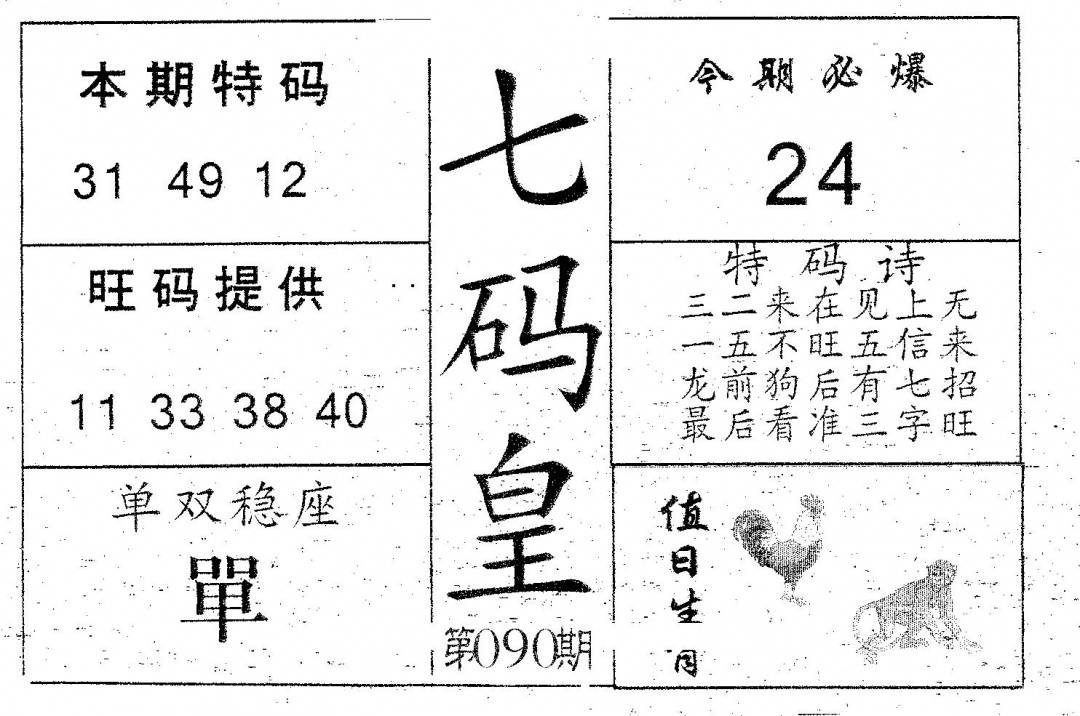 本期特码
31 49 12
旺码提供
11 33 38 40
单双稳座
單
七码皇
第090期
今期必爆
24
特码诗
三二来在见上无
一五不旺五信来
龙前狗后有七招
最后看准三字旺
值日生肖